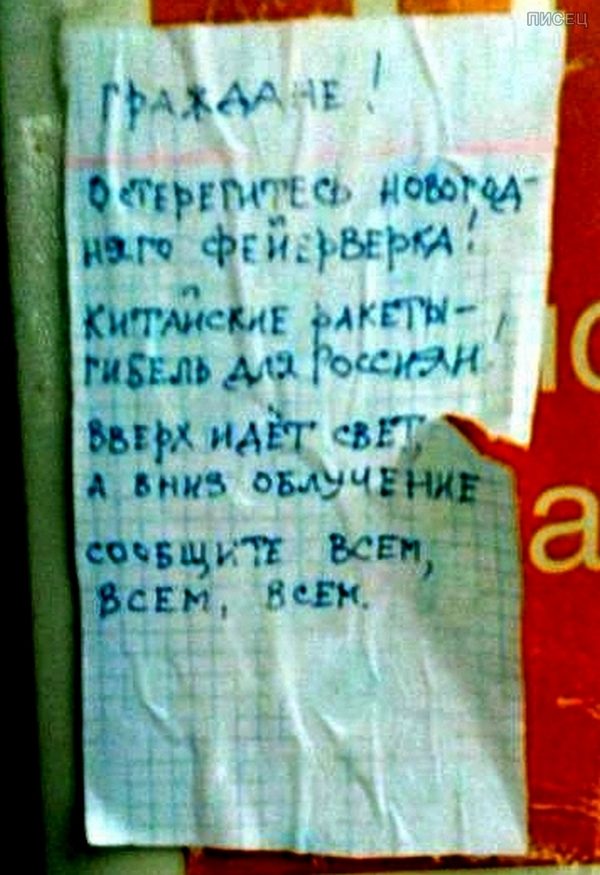 ПИСЕЦ
ГРАЖДАНЕ!
ОСТЕРЕГИТЕСЬ НОВОГОД-
НЯГО ФЕЙЕРВЕРКА!
КИТАЙСКИЕ РАКЕТЫ-
ГИБЕЛЬ ДЛЯ РОССИЯН!
ВВЕРХ ИДЁТ СВЕТ,
А ВНИЗ ОБЛУЧЕНИЕ
СООБЩИТЕ ВСЕМ,
ВСЕМ, ВСЕМ.
а